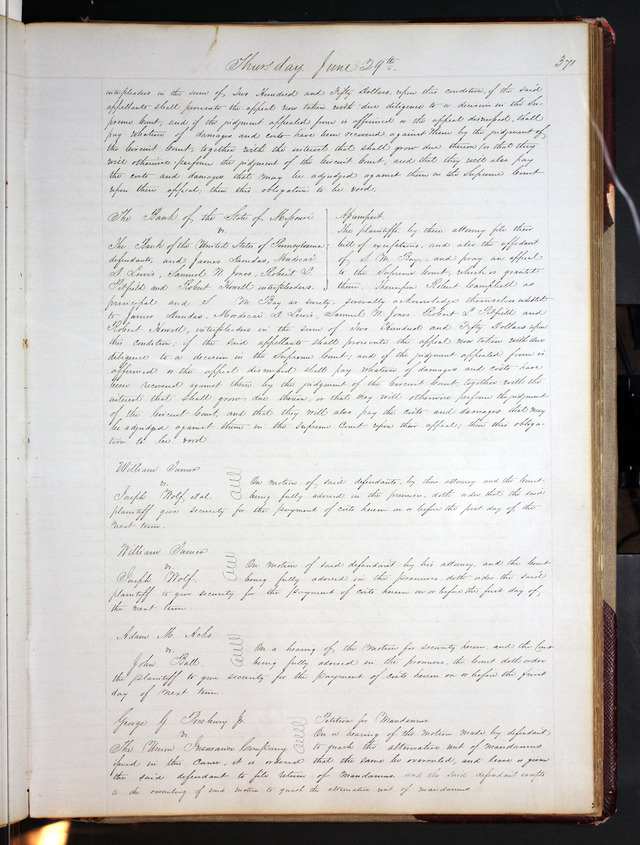 Thursday June 29th. 371
interpleaders in the sum of, Two Hundred and Fifty Dollars, upon this condition, if the said
appellants shall prosecute the appeal now taken with due diligence to a decision in the Su-
preme Court, and if the judgment appealed from is affirmed or the appeal dismissed, shall
pay whatever of damages and costs have been recovered against them by the judgment of
the Circuit Court, together with the interest that shall grow due thereon, or that they
will otherwise perform the judgment of the Circuit Court, and that they will also pay
the costs and damages that may be adjudged against them in the Supreme Court
upon their appeal; then this obligation to be void.
The Bank of, the State of Missouri
vs.
The Bank of the United States of Pennsylvania
defendants, and James Dundas, Mordecai
D Lewis, Samuel W. Jones, Robert L.
Pitfield and Robert Howell interpleaders.
Assumpsit
The plaintiffs by their attorney file their
bill of exceptions, and also the affidavit
of, S. M. Bay, and pray an appeal
to the Supreme Court, which is granted
them. Thereupon Robert Campbell as
principal and S. M. Bay as surety, severally acknowledge themselves indebted
to James Dundas, Mordecai D Lewis, Samuel W. Jones, Robert L Pitfield and
Robert Howell, interpleaders in the sum of Two Hundred and Fifty Dollars upon
this condition, if the said appellants shall prosecute the appeal now taken with due
diligence to a decision in the Supreme Court, and if the judgment appealed from is
affirmed or the appeal dismissed shall pay whatever of damages and costs have
been recovered against them by the judgment of the Circuit Court together with the
interest that shall grow due thereon, or that they will otherwise perform the judgment
of the Circuit Court, and that they will also pay the costs and damages that may
be adjudged against them in the Supreme Court upon their appeal; then this obliga-
tion to be void
William Turner
vs.
Joseph Wolf, et al
On motion of, said defendants, by their attorney and the Court
being fully advised in the premises, doth order that the said
plaintiff give security for the payment of costs herein on or before the first day of the
next term.
William Turner
vs.
Joseph Wolf
On motion of said defendant by his attorney, and the Court
being fully advised in the premises doth order the said
plaintiff to give security for the payment of costs herein on or before the first day of,
the next term
Adam M.
vs.
John Ball
On a hearing of, the motion for security herein and the Court
being fully advised in the premises, the Court doth order
the plaintiff to give security for the payment of costs herein on or before the first
day of next term.
George G Presbury Jr.
vs.
The Union Insurance Company
Petition for Mandamus
On a hearing of the motion made by defendant
to quash the alternative writ of mandamus
issued in this cause, it is ordered that the same be overruled, and leave is given
the said defendant to file return of Mandamus and the said defendant excepts
to the overruling of said motion to quash the alternative writ of mandamus